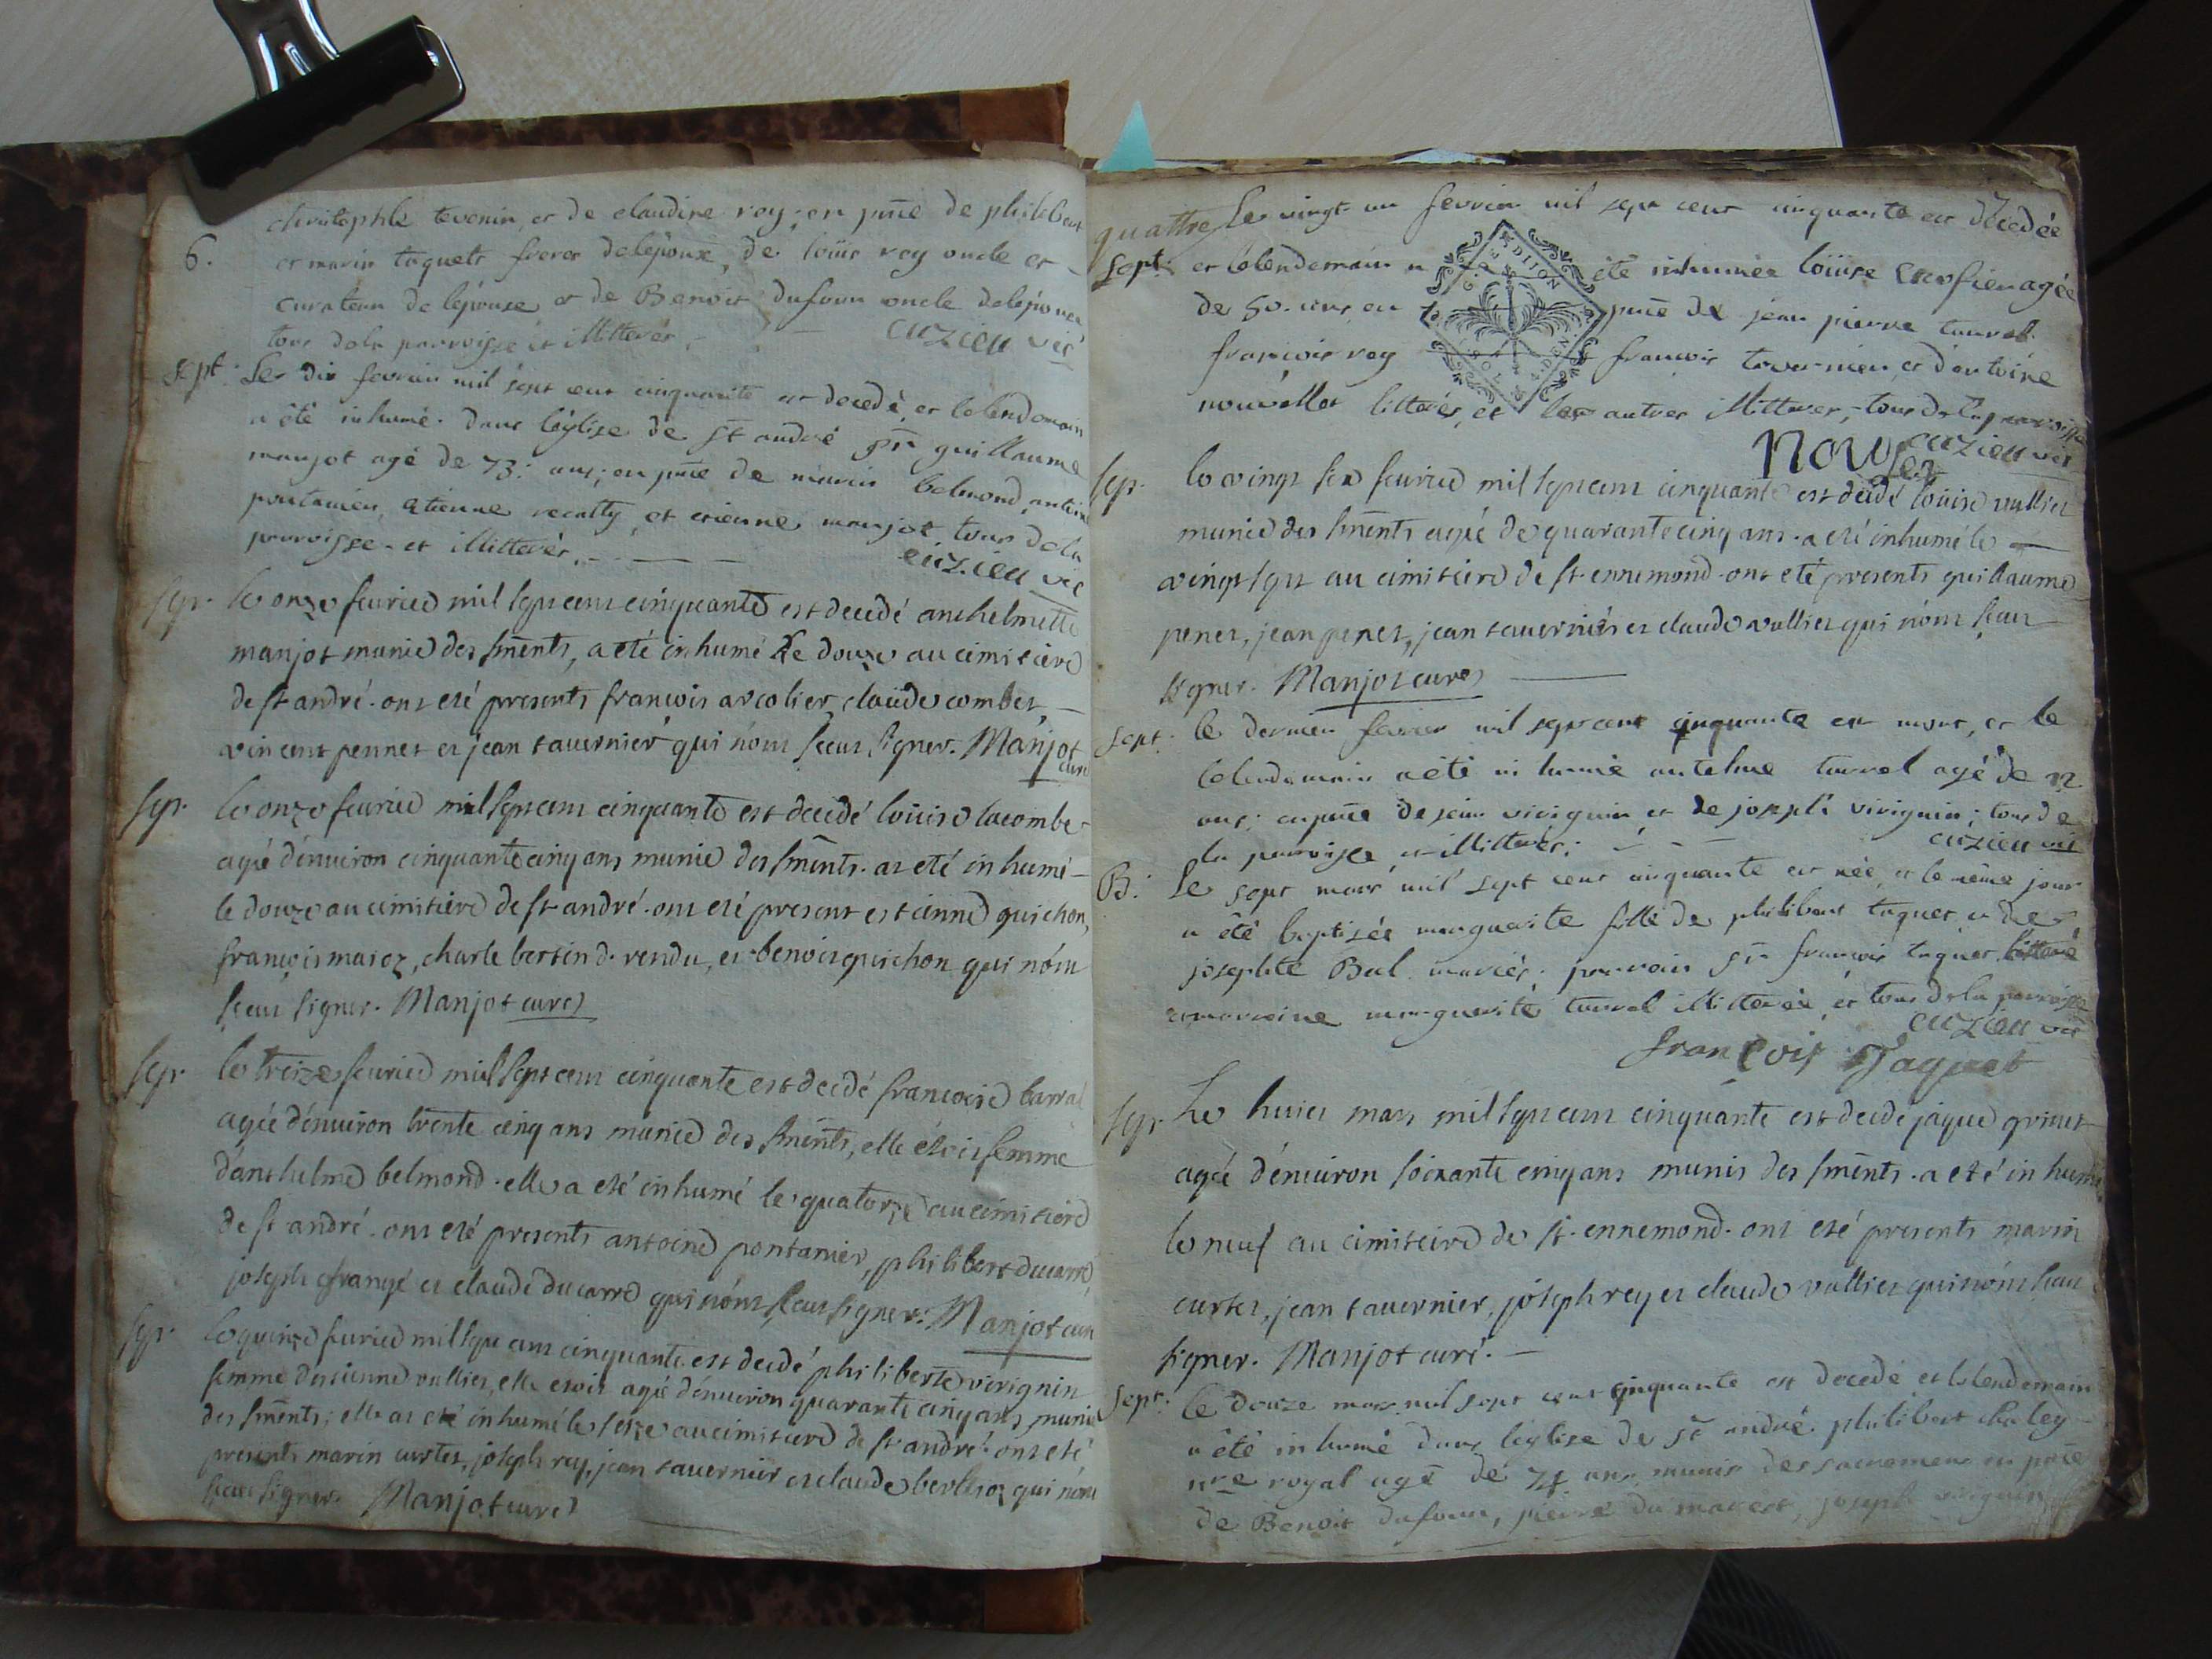 christophle tevenin, et de claudine roy; en pñce de philibert
6.
et marin taquets freres de lépoux, de loüis roy oncle et
curateur de lépouse et de Benoit dufour oncle de lépouse
tous de la parroisse et illitterés. cuzieu vic
sept: Le dix fevrier mil sept cent cinquante est decedé, et le lendemain
a été inhumé dans l'église de st andré sr guillaume
manjot agé de 73: ans; en pñce de marin belmond, antoine
pontanier, etienne recatty, et etienne manjot tous de la
parroisse et illitterés. cuzieu vic
sep. le onze feurier mil sept cent cinquante est decedé anthelmette
manjot munie des sments, a eté inhumé le douze au cimitiere
de st andré. ont eté presents françois arcolier, claude combet,
vincent pennet et jean tauernier qui n'ont sceu signer. Manjot
curé
sep. le onze feurier mil sept cent cinquante est decedé louise lacombe
agée d'enuiron cinquante cinq ans munie des sments. at eté inhumé
le douze au cimitiere de st andré. ont eté present estienne guichon,
françois maroz, charle bertin d. vendu, et benoit guichon qui n'ont
sceu signer. Manjot curé
sep. le treize feurier mil sept cent cinquante est decedé francoise barral
agée d'enuiron trente cinq ans munie des sments, elle étoit femme
d'anthelme belmond. elle a eté inhumé le quatorze au cimitiere
de st andré. ont eté presents antoine pontanier, philibert ducarre,
joseph et claude ducarre qui n'ont sceu signer. Manjot curé
sep. le quinze feurier mil sept cent cinquante est decedé philiberte virignin
femme d'estienne vullier, elle etoit agée d'enuiron quarante cinq ans, munie
des sments; elle at eté inhumé le seize au cimitiere de st andré. ont eté
presents marin curtet, joseph rey, jean tauernier et claude berthoz qui n'ont
sceu signer. Manjot curé
quattre Le vingt un fevrier mil sept cent cinquante est décedée
sept: et le lendemain a été inhumée loüise agée
DIJON
de 50. ans, en pñce de jean pierre turrel
françois roy françois tavernier, et d'antoine
nouvellet litterés, et les autres illitterés, tous de la parroisse
nouvellet cuzieu vic
sep. le vingt six feurier mil sept cent cinquante est decedé louise vullier
munie des sments agée de quarante cinq ans. a eté inhumé le
vingt sept au cimitiere de st ennemond. ont eté presents guillaume
penet, jean penet, jean tauernier et claude vullier qui n'ont sceu
signer. Manjot curé
sept: le dernier fevrier mil sept cent cinquante est mort, et le
le lendemain a été inhumé antelme turrel agé de 12
ans: en pñce de jean virignin et de joseph virignin; tous de
la parroisse et illitterés: cuzieu vic
B: Le sept mars mil sept cent cinquante est née, et le même jour
a été baptisée marguerite fille de philibert taquet et de
josephte Bal mariés. parrain sr françois taquet litteré
et marraine marguerite turrel illitterée, et tous de la parroisse
cuzieu vic
françois Taquet
sep. Le huict mars mil sept cent cinquante est decedé jaque
agée d'enuiron soixante cinq ans munis des sments. a eté inhumé
le neuf au cimitiere de st ennemond. ont eté presents marin
curtet, jean tauernier, joseph rey et claude vullier qui n'ont sceu
signer. Manjot curé.
sept: le douze mars mil sept cent cinquante est decedé et le lendemain
a été inhumé dans l'église de st andré philibert chaley
nre royal agé de 74 ans, munis des sacremens en pñce
de Benoit dufour, pierre du marest, joseph virignin